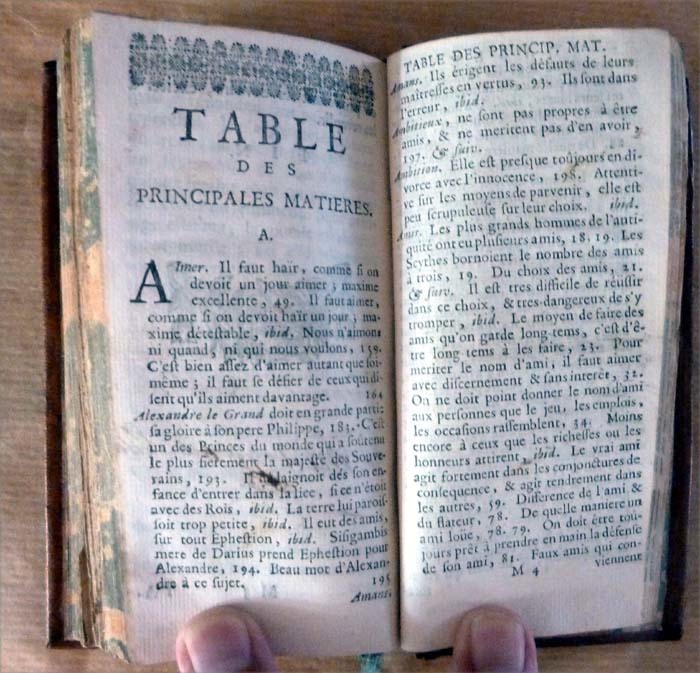 TABLE
DES
PRINCIPALES MATIERES.
A.
AImer. Il faut haïr, comme si on
devoit un jour aimer; maxime
excellente, 49. Il faut aimer,
comme si on devoit haïr un jour; ma-
xime détestable, ibid. Nous n'aimons
ni quand, ni qui nous voulons, 159.
C'est bien assez d'aimer autant que soi-
même; il faut se défier de ceux qui di-
sent qu'ils aiment davantage. 164
Alexandre le Grand doit en grande partie
sa gloire à son pere Philippe, 183. C'est
un des Princes du monde qui a soutenu
le plus fierement la majesté des Souve-
rains, 193. Il dédaignoit dès son en-
fance d'entrer dans la lice, si ce n'étoit
avec des Rois, ibid. La terre lui parois-
soit trop petite, ibid. Il eut des amis,
sur tout Ephestion, ibid. Sisigambis
mere de Darius prend Ephestion pour
Alexandre, 194. Beau mot d'Alexan-
dre à ce sujet. 195
Amans,
TABLE DES PRINCIP. MAT.
Amans. Ils érigent les défauts de leurs
maîtresses en vertus, 93. Ils sont dans
l'erreur, ibid.
Ambitieux, ne sont pas propres à être
amis, & ne meritent pas d'en avoir,
197. & suiv.
Ambition. Elle est presque toûjours en di-
vorce avec l'innocence, 198. Attenti-
ve sur les moyens de parvenir, elle est
peu scrupuleuse sur leur choix. ibid.
Amis. Les plus grands hommes de l'anti-
quité ont eu plusieurs amis, 18, 19. Les
Scythes bornoient le nombre des amis
à trois, 19. Du choix des amis, 21.
& suiv. Il est tres difficile de réussir
dans ce choix, & tres-dangereux de s'y
tromper, ibid. Le moyen de faire des
amis qu'on garde long-tems, c'est d'ê-
tre long tems à les faire, 23. Pour
meriter le nom d'ami, il faut aimer
avec discernement & sans interêt, 32.
On ne doit point donner le nom d'ami
aux personnes que le jeu, les emplois,
les occasions rassemblent, 34. Moins
encore à ceux que les richesses ou les
honneurs attirent, ibid. Le vrai ami
agit fortement dans les conjonctures de
consequence, & agit tendrement dans
les autres, 59. Difference de l'ami &
du flateur, 78. De quelle maniere un
ami loue, 78. 79. On doit être toû-
jours prêt à prendre en main la défense
de son ami, 81. Faux amis qui con-
M 4 viennent